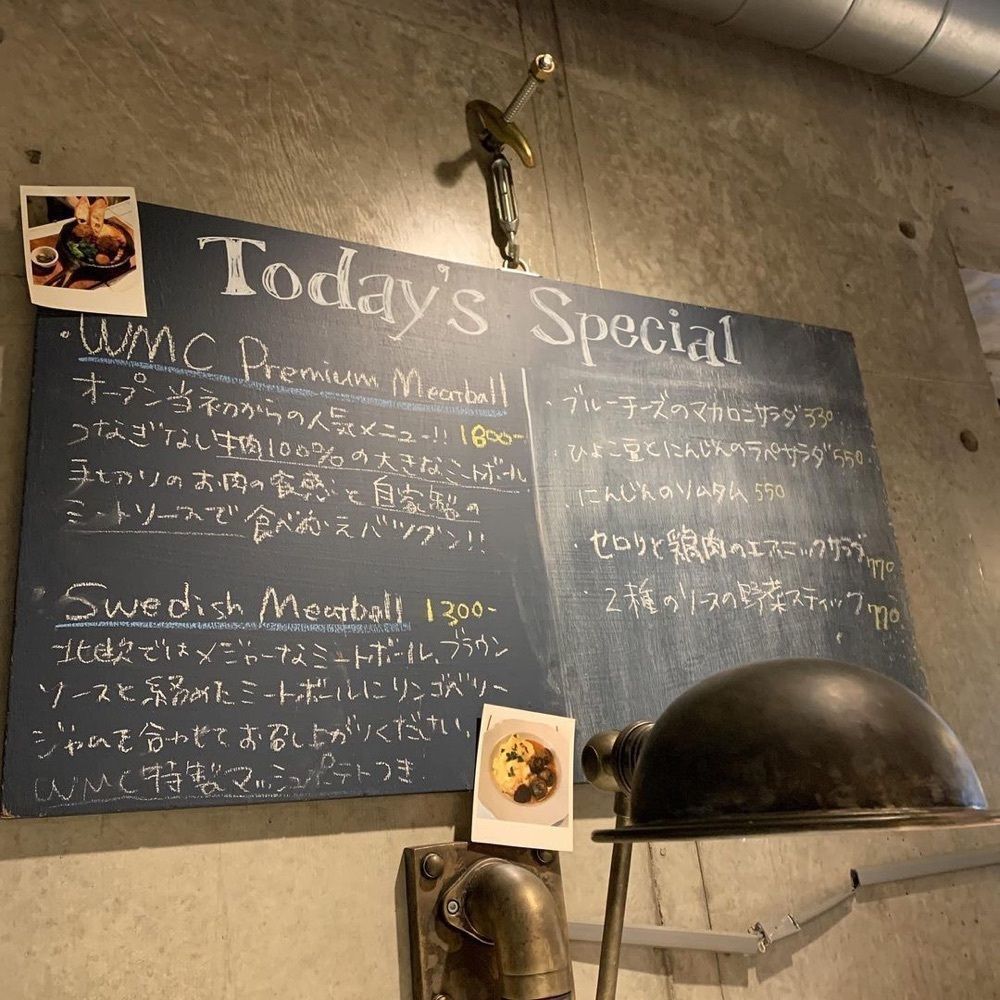 Today's Special
・WMC Premium Meatball
オープン当初からの人気メニュー!! 1800-
つなぎなし牛肉100%の大きなミートボール
手切りのお肉の食感と自家製の
ミートソースで食べ応えバツグン!!
Swedish Meatball 1300-
北欧ではメジャーなミートボール、ブラウン
ソースと絡めたミートボールにリンゴベリー
ジャムを合わせてお召し上がりください。
WMC特製マッシュポテトつき
・ブルーチーズのマカロニサラダ 330
・ひよこ豆とにんじんのラペサラダ 550
・にんじんのソムタム 550
・セロリと鶏肉のエスニックサラダ 770
・2種のソースの野菜スティック 770